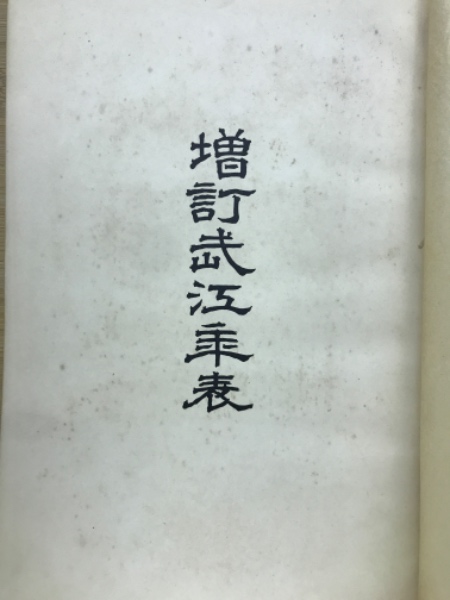 増訂武江年表